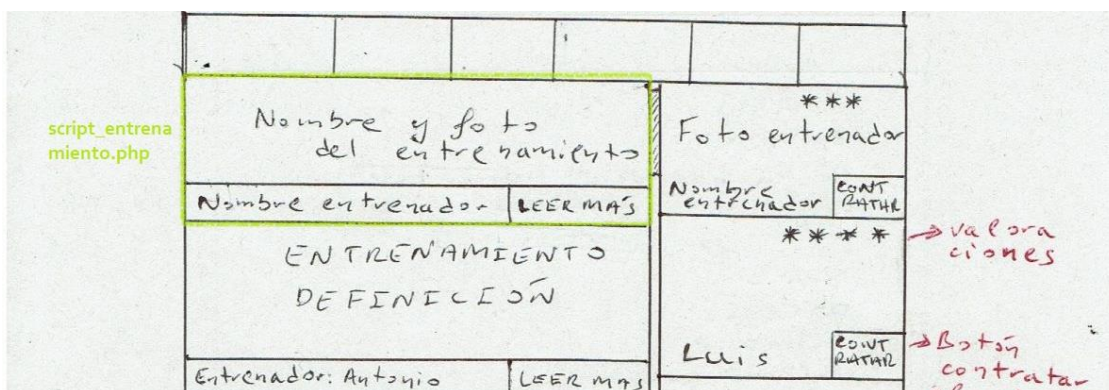 script_entrena
miento.php
Nombre y foto
del entrenamiento
Nombre entrenador
LEER MÁS
ENTRENAMIENTO
DEFINICIÓN
Entrenador: Antonio
LEER MÁS
***
Foto entrenador
Nombre
entrenador
CONT
RATAR
****
valora
ciones
Luis
CONT
RATAR
Botón
contratar